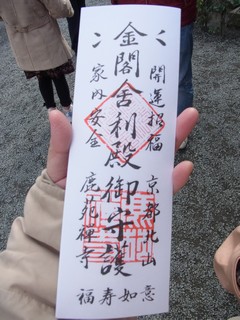 開運招福
京都北山
金閣舎利殿御守護
家内安全
鹿苑禅寺
如意
寿
福